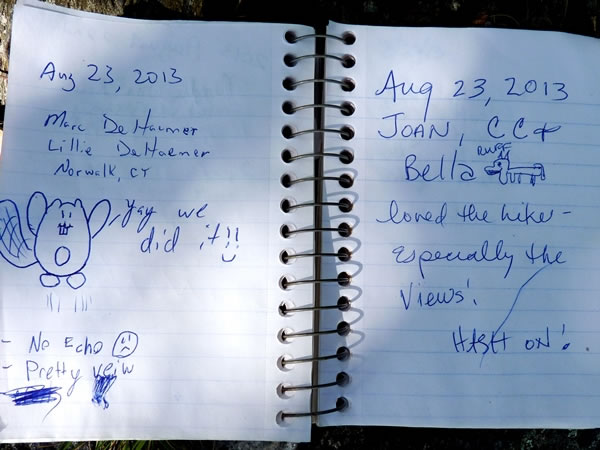 Aug 23, 2013
Marc DeHaemer
Lillie DeHaemer
Norwalk, CT
yay we
did it!!
- No Echo
- Pretty veiw
Aug 23, 2013
JOAN, CC &
Bella RUFF
loved the hike -
especially the
views!
HASH ON!